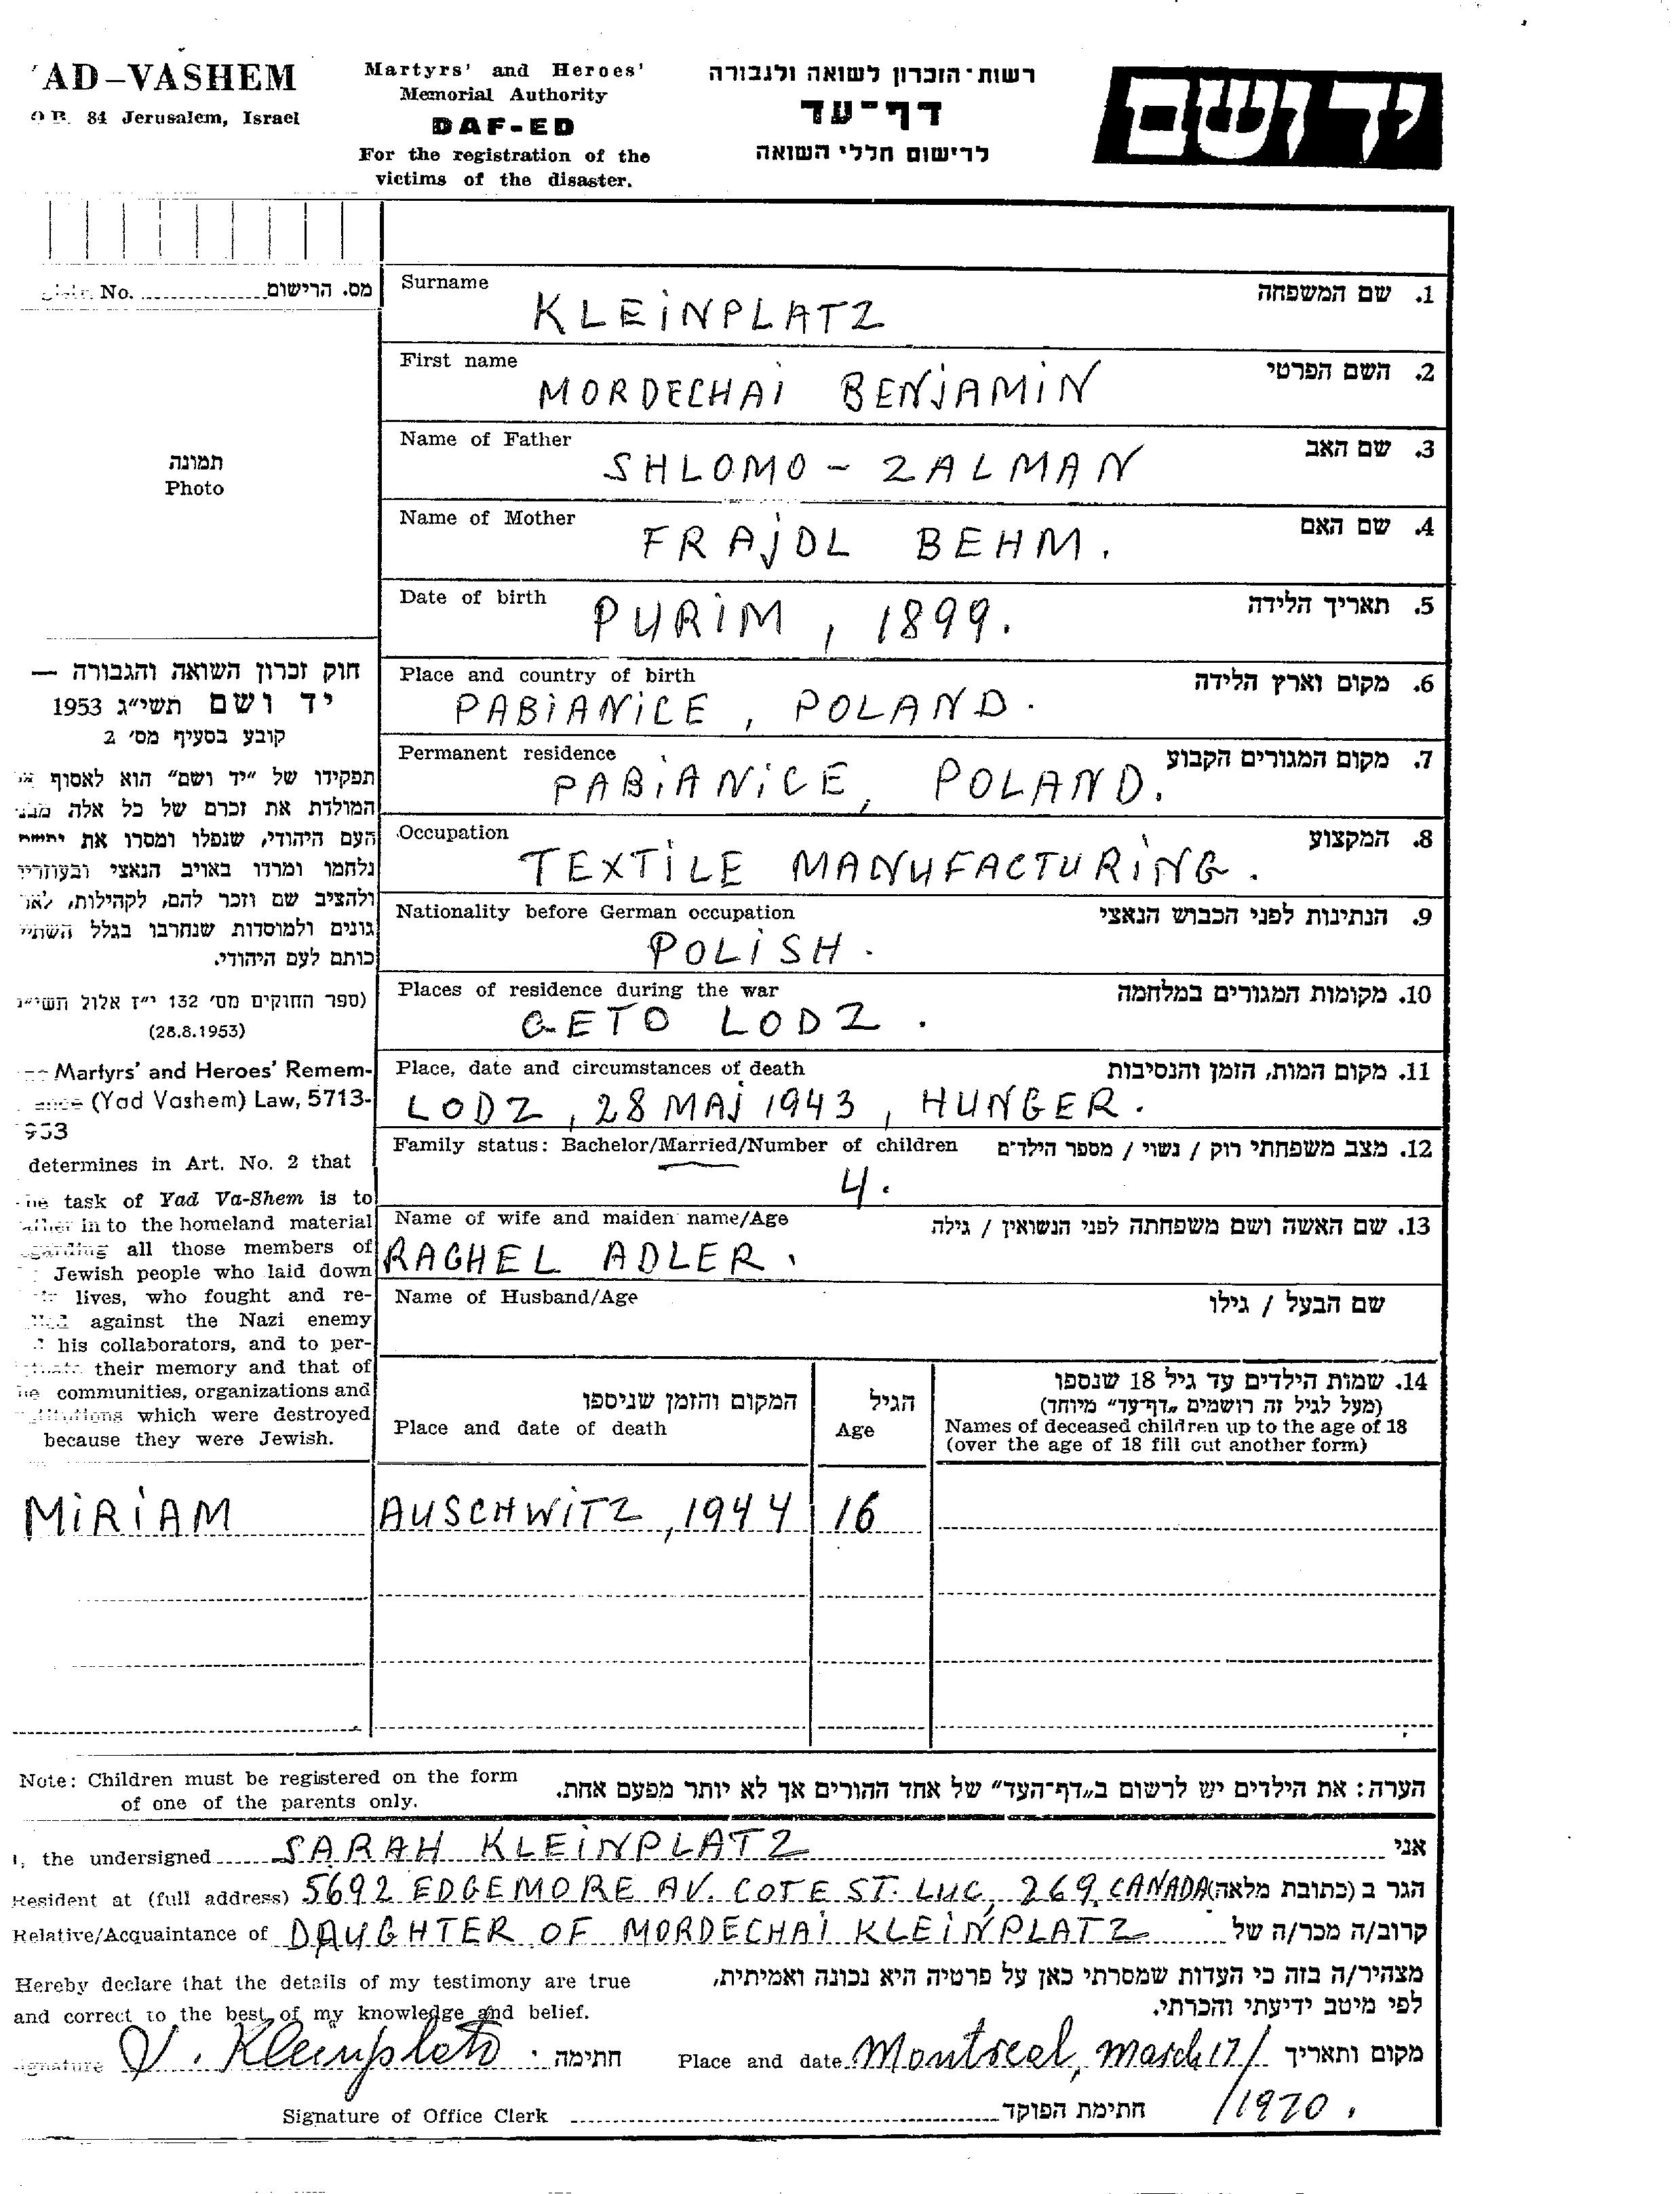 AD-VASHEM
O B. 84 Jerusalem, Israel
Martyrs' and Heroes'
Memorial Authority
DAF-ED
For the registration of the
victims of the disaster.
רשות-הזכרון לשואה ולגבורה
דף-עד
לרישום חללי השואה
יד ושם
No. ............ מס. הרישום
תמונה
Photo
חוק זכרון השואה והגבורה —
יד ושם תשי״ג 1953
קובע בסעיף מס׳ 2
תפקידו של ״יד ושם״ הוא לאסוף
המולדת את זכרם של כל אלה
העם היהודי, שנפלו ומסרו את
נלחמו ומרדו באויב הנאצי
ולהציב שם וזכר להם, לקהילות,
גונים ולמוסדות שנחרבו בגלל
כותם לעם היהודי.
(ספר החוקים מס׳ 132 י״ז אלול
(28.8.1953)
Martyrs' and Heroes' Remem-
(Yad Vashem) Law, 5713-
953
determines in Art. No. 2 that
task of Yad Va-Shem is to
in to the homeland material
all those members of
Jewish people who laid down
lives, who fought and re-
against the Nazi enemy
his collaborators, and to per-
their memory and that of
communities, organizations and
which were destroyed
because they were Jewish.
Surname 1. שם המשפחה
KLEINPLATZ
First name 2. השם הפרטי
MORDECHAI BENJAMIN
Name of Father 3. שם האב
SHLOMO - ZALMAN
Name of Mother 4. שם האם
FRAJDL BEHM.
Date of birth 5. תאריך הלידה
PURIM, 1899.
Place and country of birth 6. מקום וארץ הלידה
PABIANICE, POLAND.
Permanent residence 7. מקום המגורים הקבוע
PABIANICE, POLAND.
Occupation 8. המקצוע
TEXTILE MANUFACTURING.
Nationality before German occupation 9. הנתינות לפני הכבוש הנאצי
POLISH.
Places of residence during the war 10. מקומות המגורים במלחמה
GETO LODZ.
Place, date and circumstances of death 11. מקום המות, הזמן והנסיבות
LODZ, 28 MAJ 1943, HUNGER.
Family status: Bachelor/Married/Number of children 12. מצב משפחתי רוק / נשוי / מספר הילדים
4.
Name of wife and maiden name/Age 13. שם האשה ושם משפחתה לפני הנשואין / גילה
RACHEL ADLER.
Name of Husband/Age שם הבעל / גילו
המקום והזמן שניספו
Place and date of death
הגיל
Age
14. שמות הילדים עד גיל 18 שנספו
(מעל לגיל זה רושמים „דף-עד״ מיוחד)
Names of deceased children up to the age of 18
(over the age of 18 fill out another form)
MIRIAM AUSCHWITZ, 1944 16
Note: Children must be registered on the form
of one of the parents only.
הערה: את הילדים יש לרשום ב„דף-העד״ של אחד ההורים אך לא יותר מפעם אחת.
I, the undersigned SARAH KLEINPLATZ אני
Resident at (full address) 5692 EDGEMORE AV. COTE ST. LUC, 269, CANADA הגר ב (כתובת מלאה)
Relative/Acquaintance of DAUGHTER OF MORDECHAI KLEINPLATZ קרוב/ה מכר/ה של
Hereby declare that the details of my testimony are true
and correct to the best of my knowledge and belief.
מצהיר/ה בזה כי העדות שמסרתי כאן על פרטיה היא נכונה ואמיתית,
לפי מיטב ידיעתי והכרתי.
Signature Kleinplatz חתימה
Place and date Montreal, March 17/ מקום ותאריך
/1970.
Signature of Office Clerk חתימת הפוקד